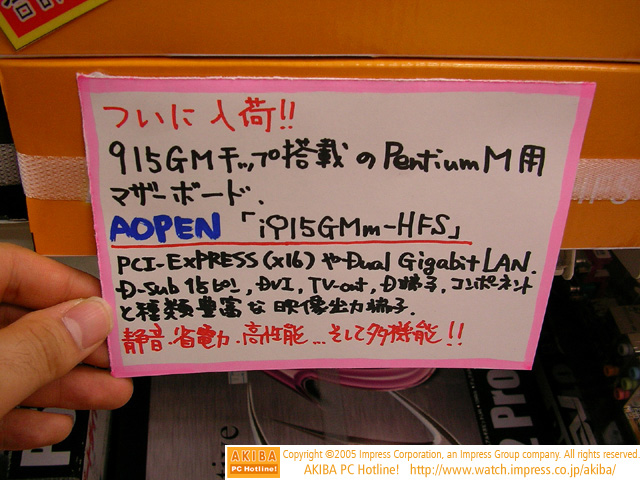 ついに入荷!!
915GMチップ搭載のPentium M用
マザーボード.
AOPEN「i915GMm-HFS」
PCI-EXPRESS(x16)やDual Gigabit LAN.
D-Sub 15ピン, DVI, TV-out, D端子, コンポーネント
と種類豊富な映像出力端子.
静音.省電力.高性能...そして多機能!!
AKIBA
PC Hotline!
Copyright ©2005 Impress Corporation, an Impress Group company. All rights reserved.
AKIBA PC Hotline! http://www.watch.impress.co.jp/akiba/